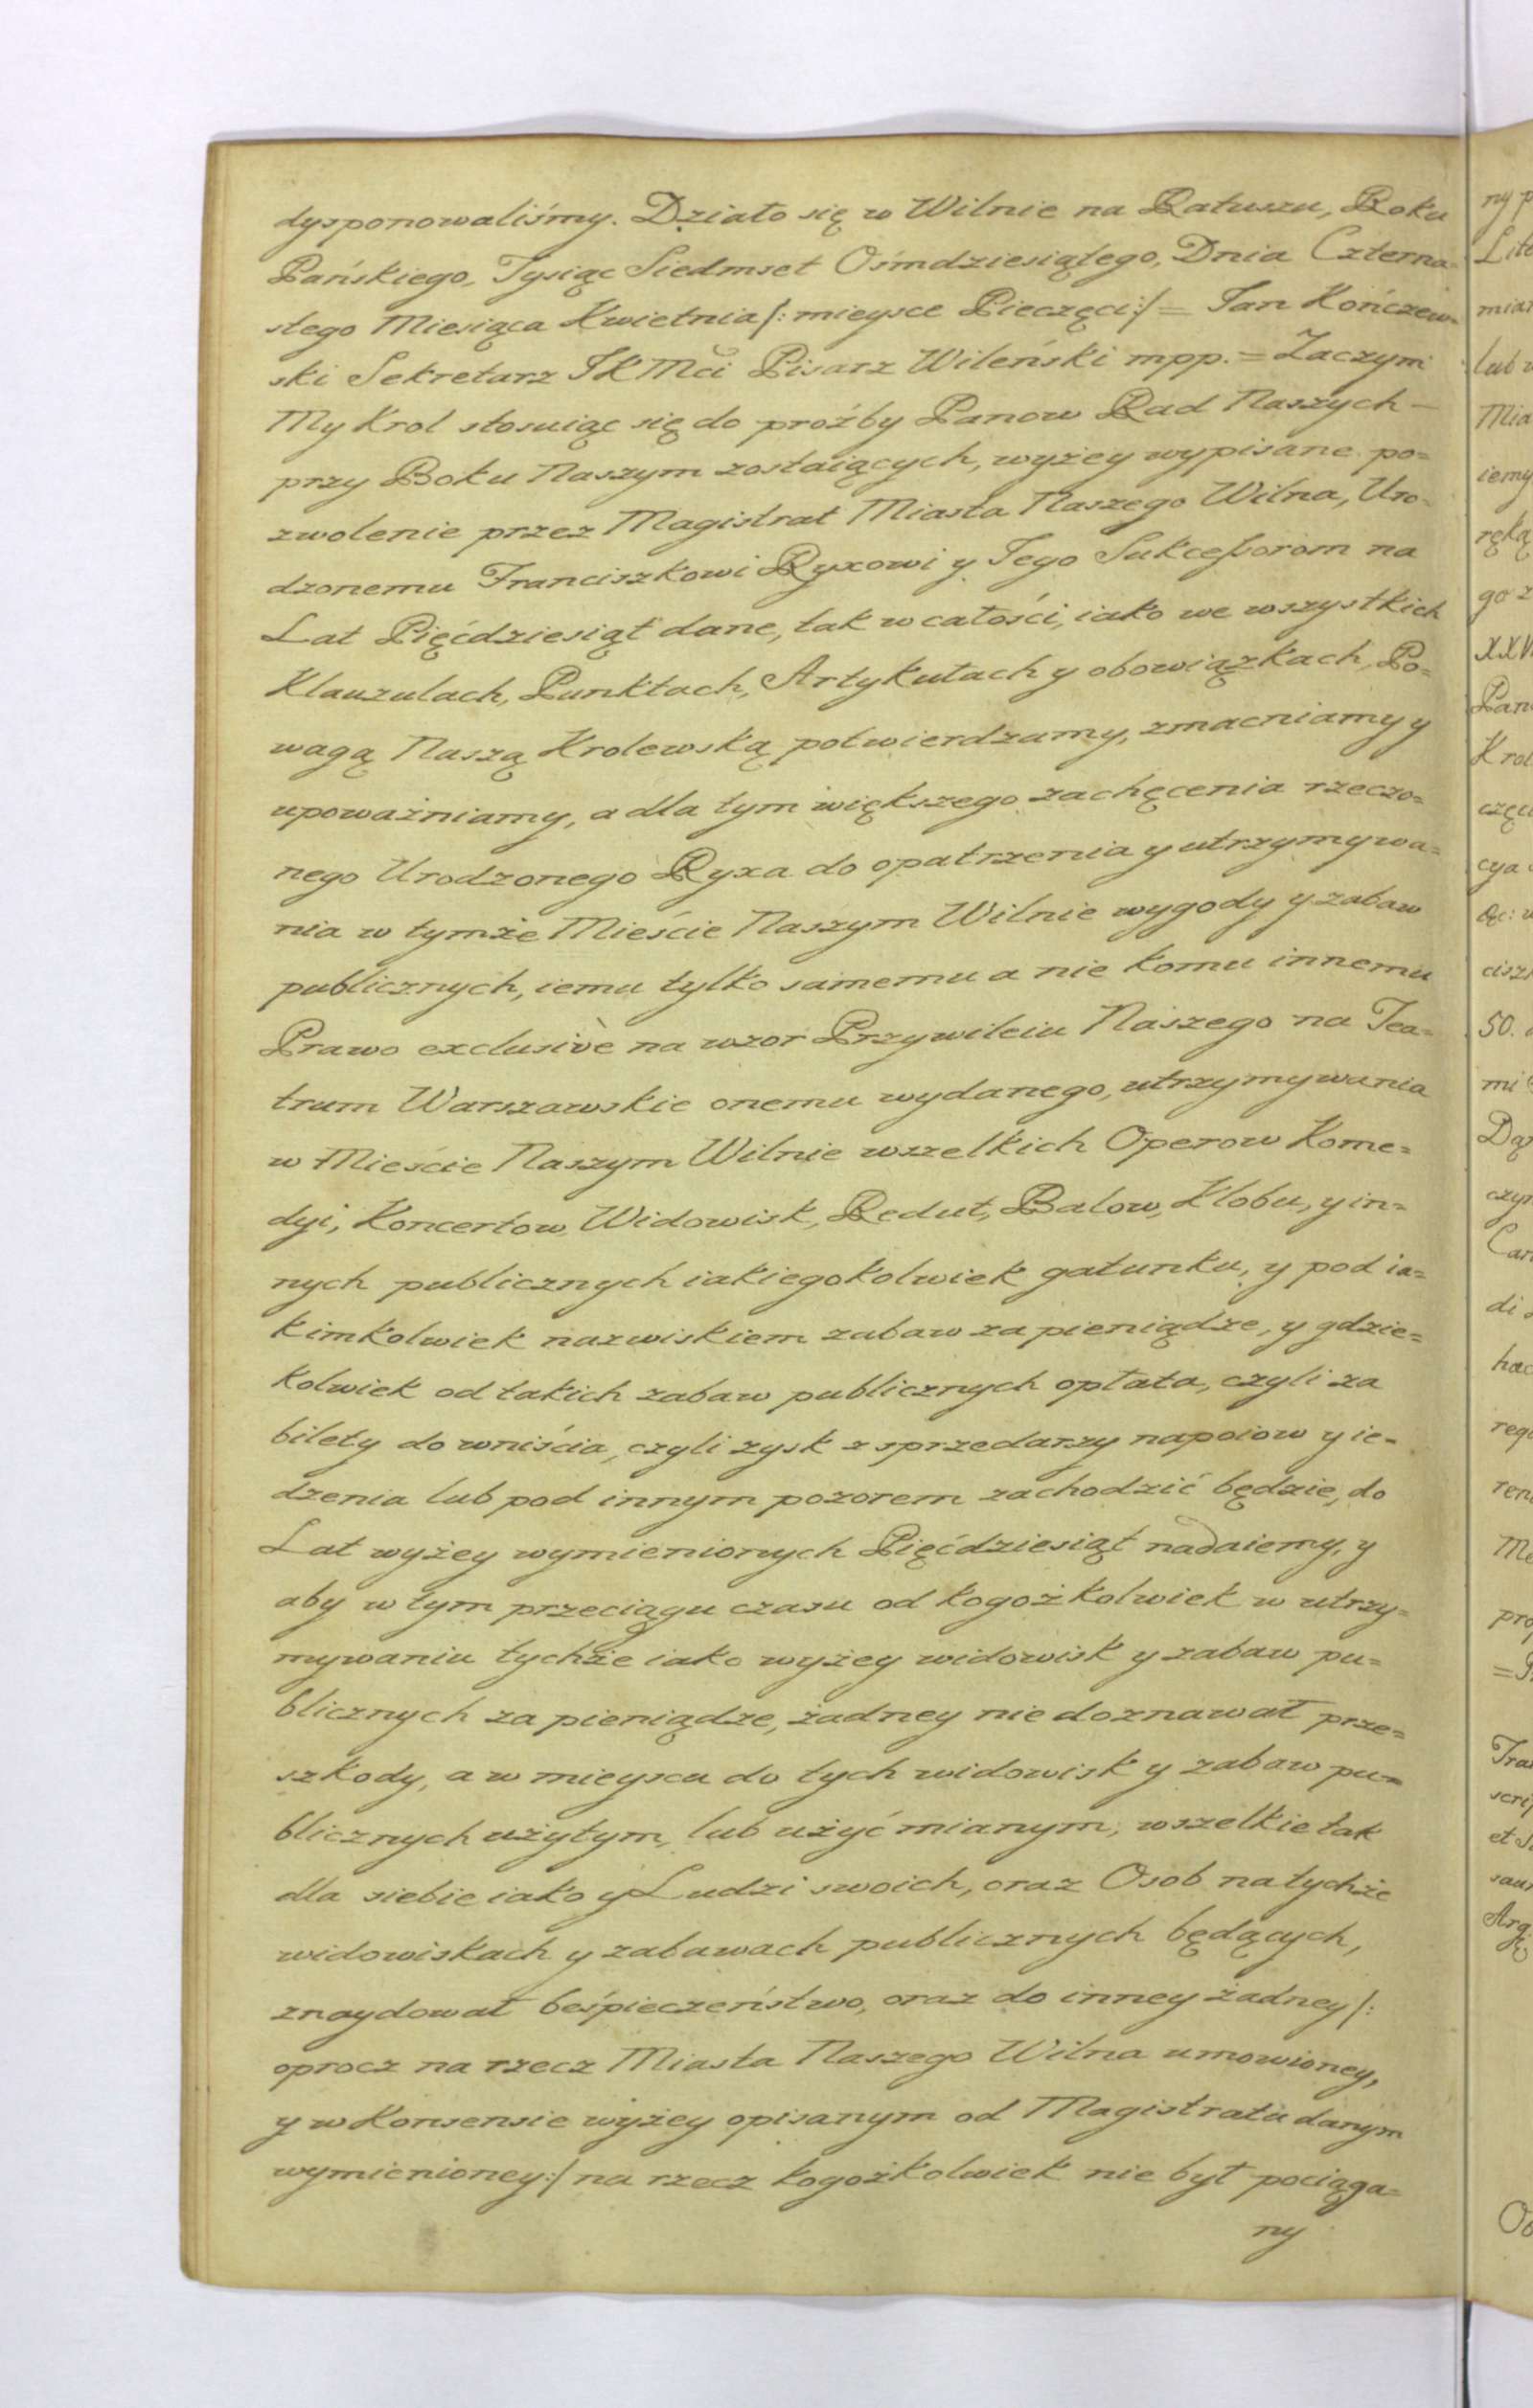 dysponowaliśmy. Działo się w Wilnie na Ratuszu, Roku
Pańskiego, Tysiąc Siedmset Ośmdziesiątego, Dnia Czterna-
stego Miesiąca Kwietnia /: mieysce Pieczęci :/ = Jan Kończew-
ski Sekretarz JKMci Pisarz Wileński mpp. = Zaczym
My Krol stosuiąc się do proźby Panow Rad Naszych —
przy Boku Naszym zostaiących, wyżey wypisane po=
zwolenie przez Magistrat Miasta Naszego Wilna, Uro-
dzonemu Franciszkowi Ryxowi y Jego Sukcessorom na
Lat Pięćdziesiąt dane, tak w całości, iako we wszystkich
Klauzulach, Punktach, Artykułach y obowiązkach, Po=
wagą Naszą Krolewską potwierdzamy, zmacniamy y
upoważniamy, a dla tym większego zachęcenia rzeczo=
nego Urodzonego Ryxa do opatrzenia y utrzymywa=
nia w tymże Mieście Naszym Wilnie wygody y zabaw
publicznych, iemu tylko samemu a nie komu innemu
Prawo exclusivè na wzor Przywileiu Naszego na Tea=
trum Warszawskie onemu wydanego, utrzymywania
w Mieście Naszym Wilnie wszelkich Operow Kome=
dyi, Koncertow, Widowisk, Redut, Balow, Klobu, y in=
nych publicznych iakiegokolwiek gatunku, y pod ia=
kimkolwiek nazwiskiem zabaw za pieniądze, y gdzie=
kolwiek od takich zabaw publicznych opłata, czyli za
bilety do wniścia, czyli zysk z sprzedarzy napoiow y ie-
dzenia lub pod innym pozorem zachodzić będzie, do
Lat wyżey wymienionych Pięćdziesiąt nadaiemy, y
aby w tym przeciągu czasu od kogożkolwiek w utrzy=
mywaniu tychże iako wyżey widowisk y zabaw pu=
blicznych za pieniądze, żadney nie doznawał prze=
szkody, a w mieyscu do tych widowisk y zabaw pu=
blicznych użytym, lub użyć mianym, wszelkie tak
dla siebie iako y Ludzi swoich, oraz Osob na tychże
widowiskach y zabawach publicznych będących,
znaydował beśpieczeństwo, oraz do inney żadney /:
oprocz na rzecz Miasta Naszego Wilna umowioney,
y w Konsensie wyżey opisanym od Magistratu danym
wymienioney :/ na rzecz kogożkolwiek nie był pociąga=
ny